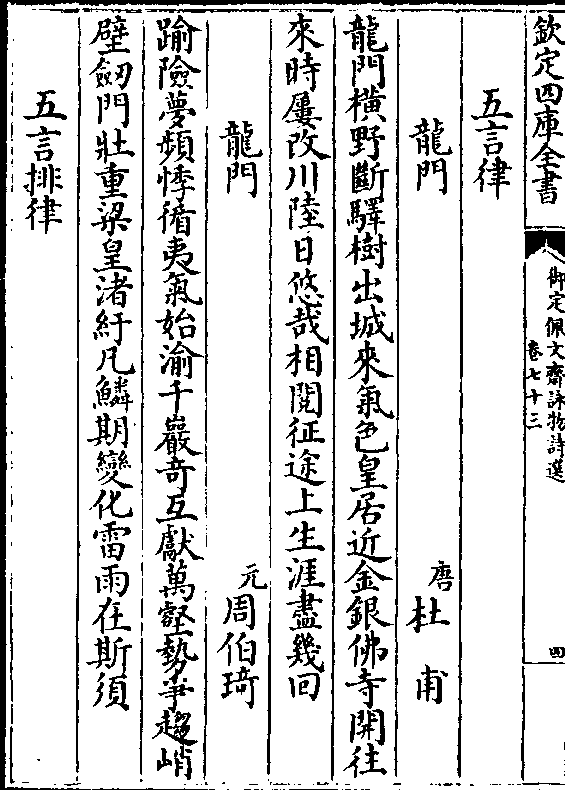 欽定四庫全書
御定佩文齋詠物詩選
卷七十三
四
五言律
龍門
唐杜甫
龍門橫野斷驛樹出城來氣色皇居近金銀佛寺開往
來時屢改川陸日悠哉相閱征途上生涯盡幾回
龍門
元周伯琦
踰險夢頻悸循夷氣始渝千巖竒互獻萬壑勢爭趨峭
壁劒門壯重梁皇渚紆凡鱗期變化雷雨在斯須
五言排律